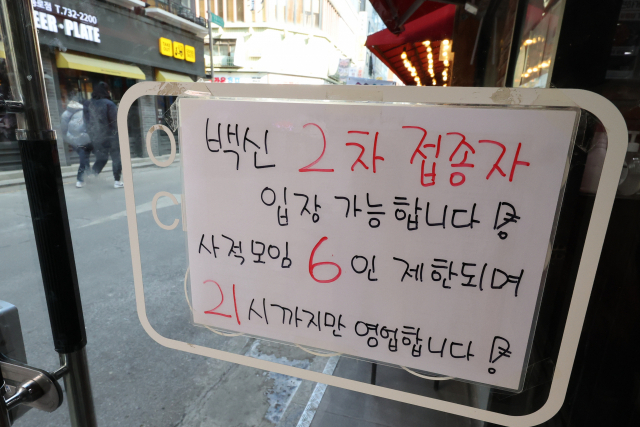 T.732-2200
BEER-PLATE
백신 2차 접종자
입장 가능합니다!
사적모임 6인 제한되며
21시까지만 영업합니다!